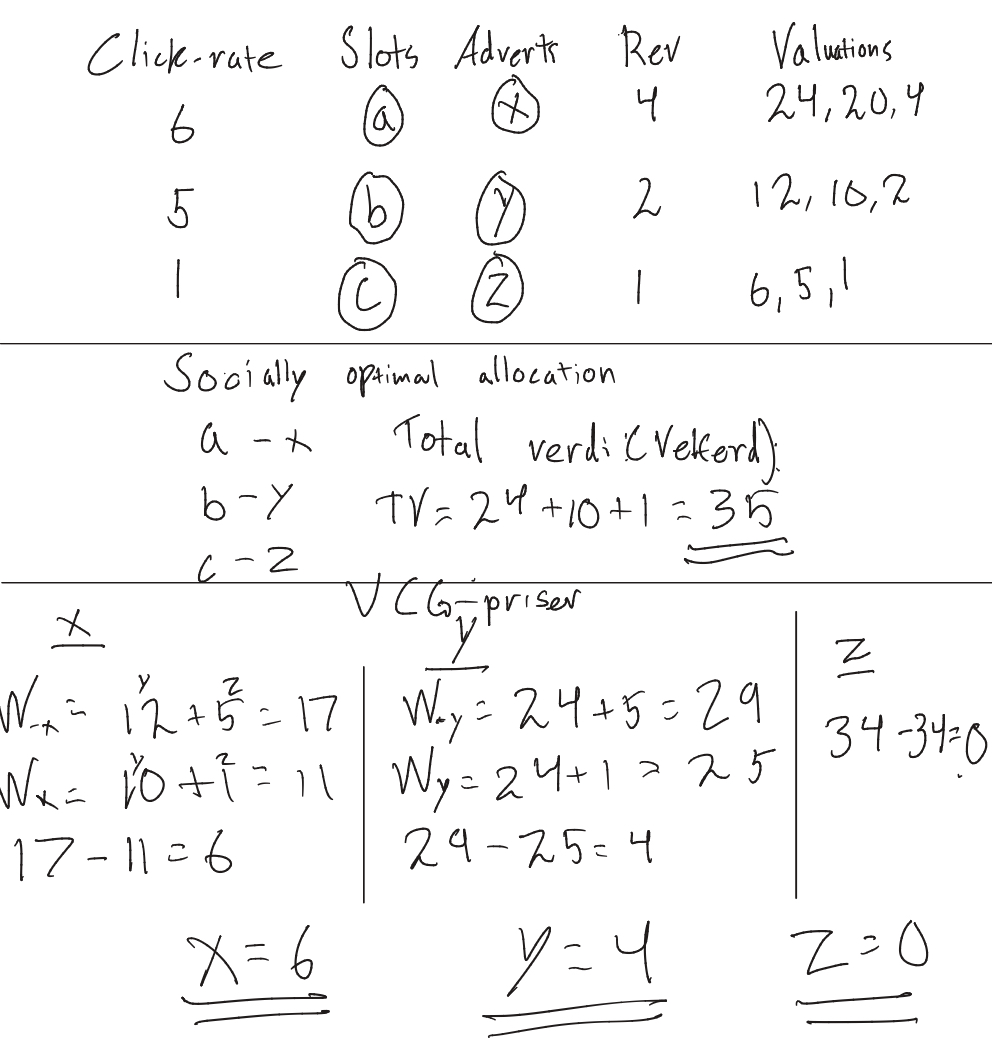 Click-rate Slots Adverts Rev Valuations
6 a x 4 24, 20, 4
5 b y 2 12, 10, 2
1 c z 1 6, 5, 1
Socially optimal allocation
a - x Total verdi (Velferd):
b - y TV = 24 + 10 + 1 = 35
c - z
VCG-priser
x
W-x = 12 + 5 = 17
y z
Wx = 10 + 1 = 11
y z
17 - 11 = 6
y
W-y = 24 + 5 = 29
Wy = 24 + 1 = 25
29 - 25 = 4
z
34 - 34 = 0
x = 6 y = 4 z = 0